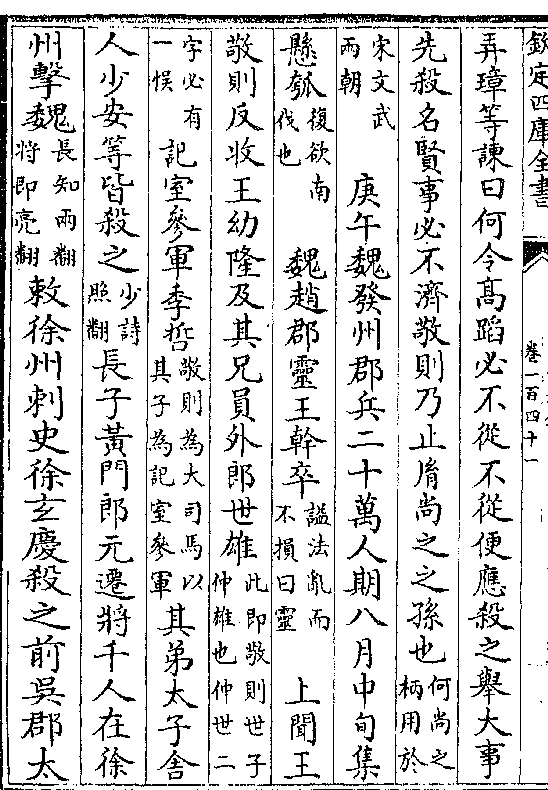 欽定四庫全書
卷一百四十一
弄璋等諫曰何令高蹈必不從不從便應殺之舉大事
先殺名賢事必不濟敬則乃止胤尚之之孫也何尚之柄用於
宋文武兩朝庚午魏發州郡兵二十萬人期八月中旬集
懸瓠復欲南伐也魏趙郡靈王幹卒諡法亂而不損曰靈上聞王
敬則反收王幼隆及其兄員外郎世雄此即敬則世子仲雄也仲世二
字必有一悞記室參軍季哲敬則為大司馬以其子為記室參軍其弟太子舍
人少安等皆殺之少詩照翻長子黃門郎元遷將千人在徐
州擊魏長知兩翻將即亮翻敕徐州刺史徐玄慶殺之前吳郡太